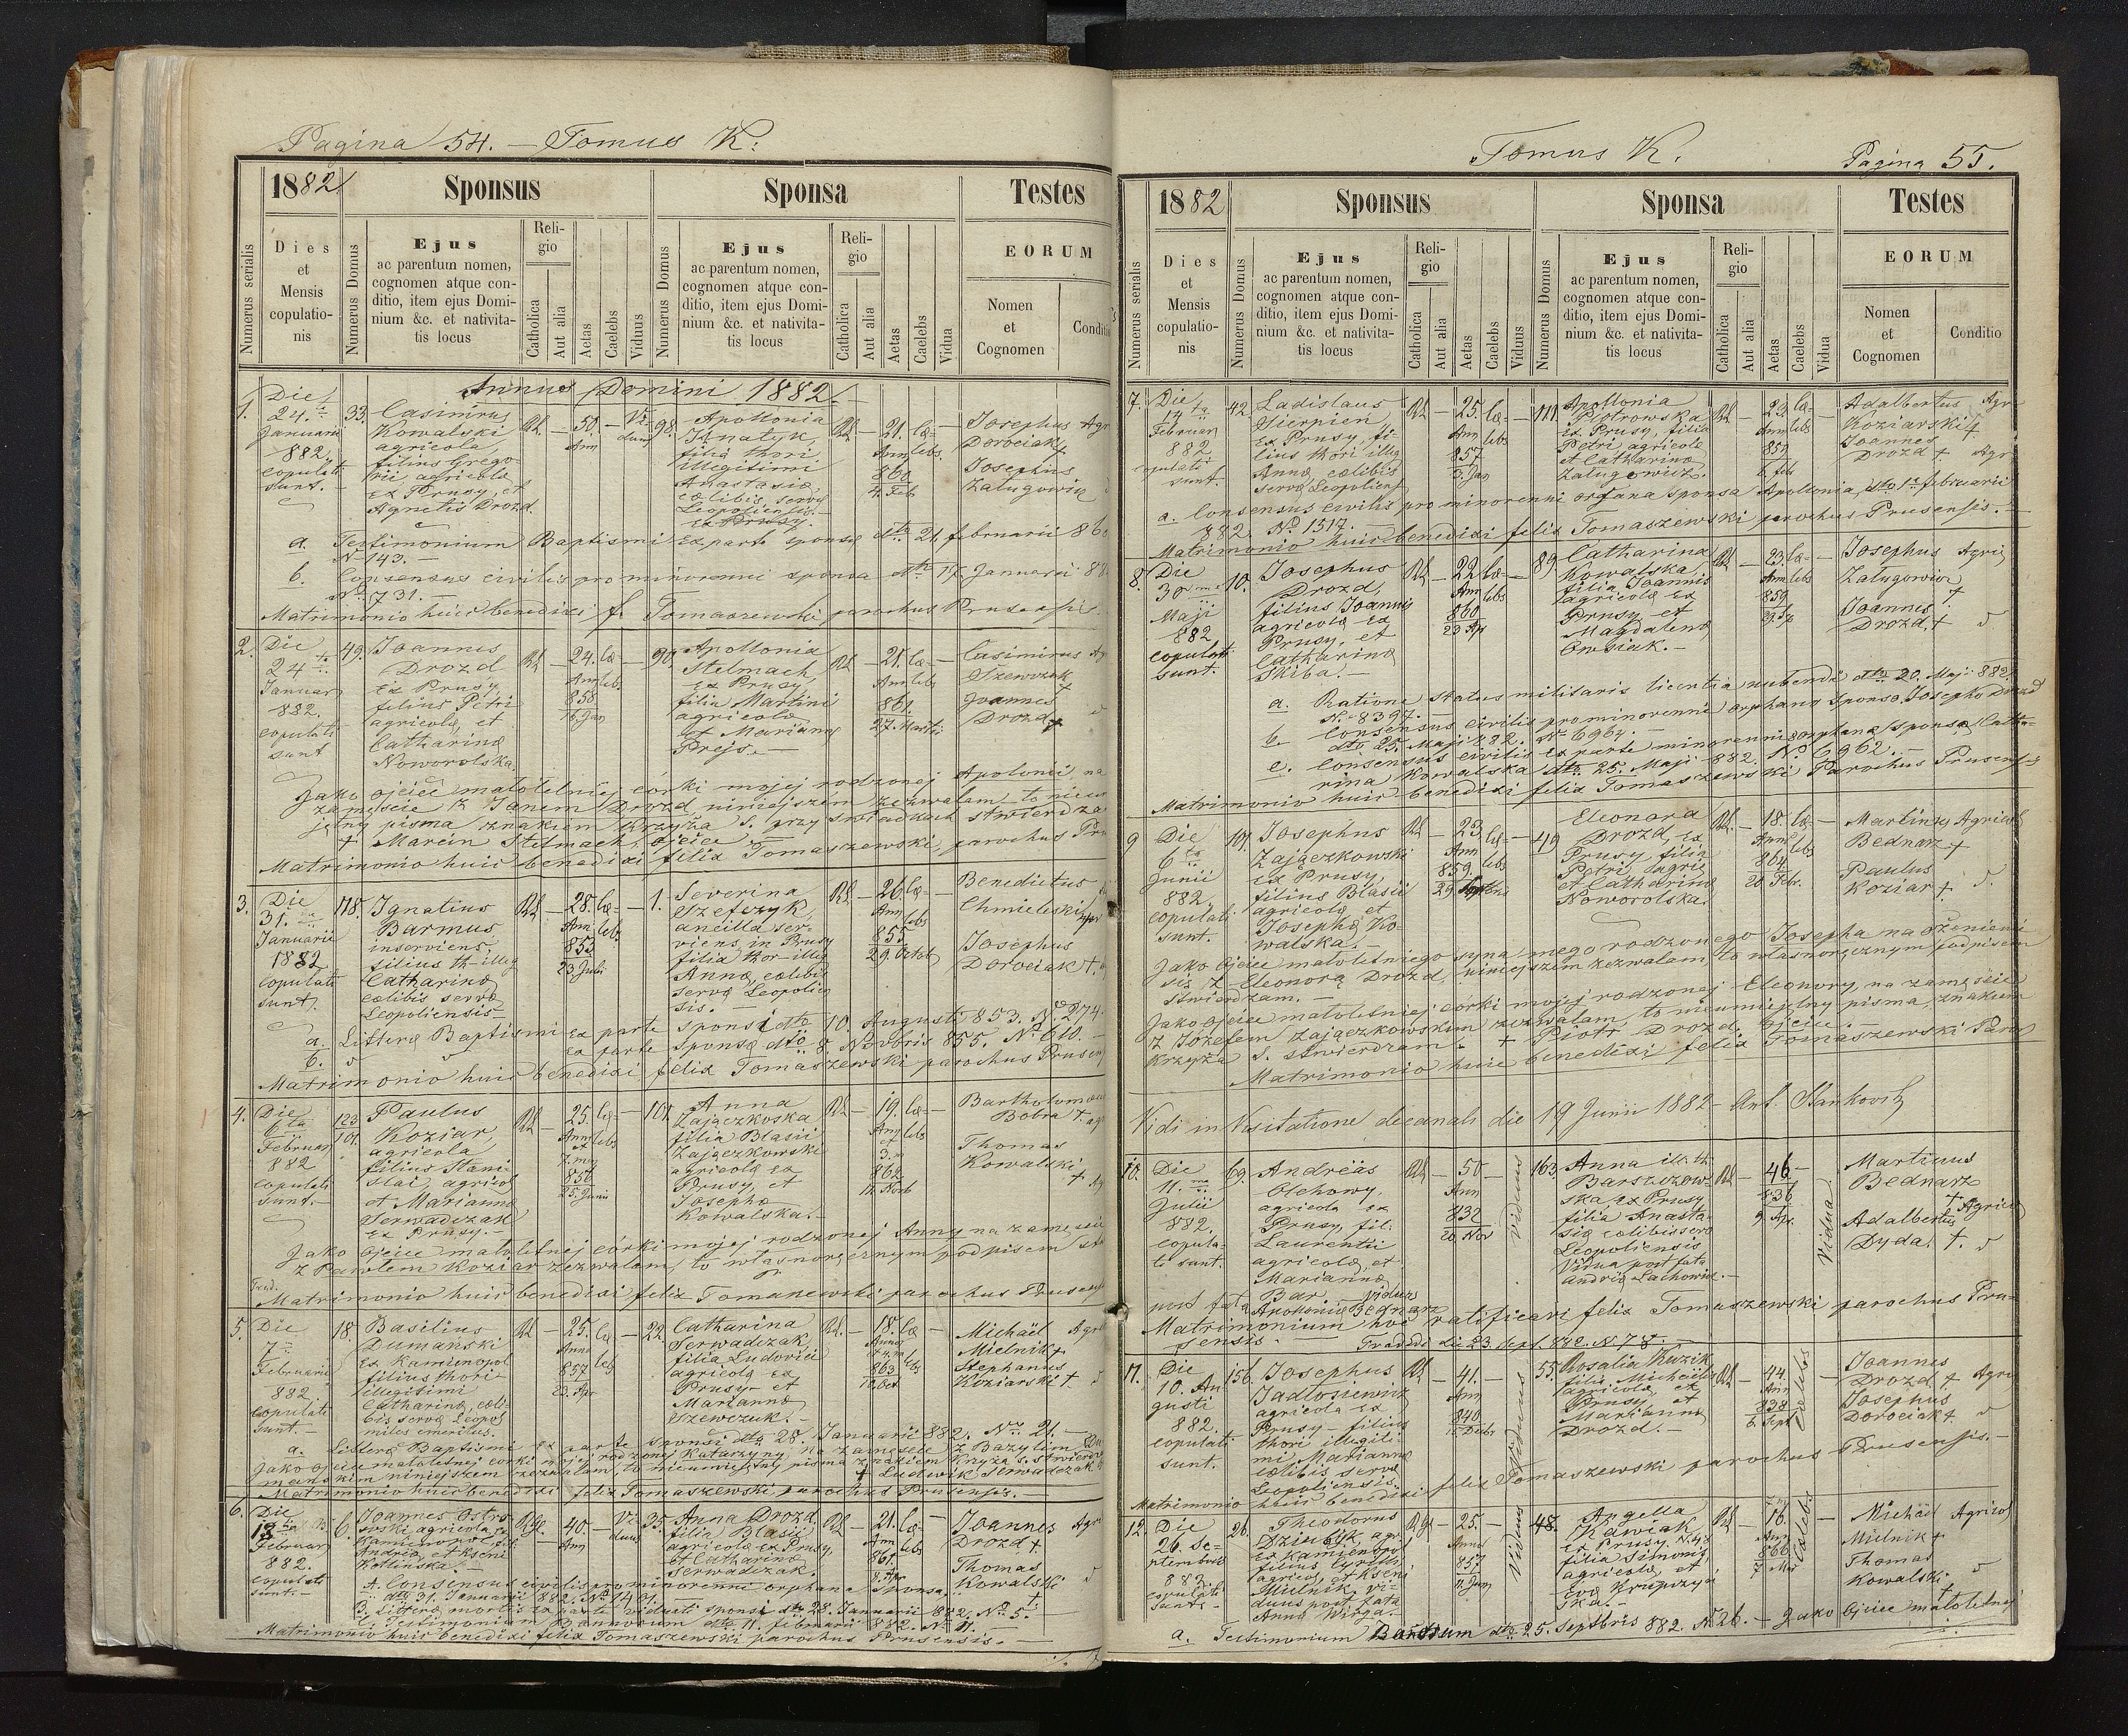 Pagina 54. — Tomus K:
1882
Sponsus
Sponsa
Testes
Numerus serialis
Dies
et
Mensis
copulatio-
nis
Numerus Domus
Ejus
ac parentum nomen,
cognomen atque con-
ditio, item ejus Domi-
nium &c. et nativita-
tis locus
Reli-
gio
Catholica
Aut alia
Aetas
Caelebs
Viduus
Numerus Domus
Ejus
ac parentum nomen,
cognomen atque con-
ditio, item ejus Domi-
nium &c. et nativita-
tis locus
Reli-
gio
Catholica
Aut alia
Aetas
Caelebs
Vidua
EORUM
Nomen
et
Cognomen
Conditio
Annus Domini 1882.
1.
Die
24
Januarii
882.
copulati
sunt.
33.
Casimirus
Kowalski
agricola,
filius Grego-
rii, agricolæ
ex Prusy, et
Agnetis Drozd.
50.
Ann
Vi-
duus
98.
Apollonia
Ignatyk,
filia thori
illegitimi
Anastasiæ
cœlibis, servæ
Leopoliensis.
ex Prusy.
21.
Ann
860
4. Feb
cæ-
lebs.
Josephus
Dorociak
Josephus
Załugowicz
Agr
a. Testimonium Baptismi ex parte sponsæ dto 21. februarii 860
No 143. —
b. Consensus civilis pro minorenni sponsa dto 17. Januarii 88
No 731. —
Matrimonio huic benedixi f. Tomaszewski parochus Prusensis
2.
Die
24
Januar
882.
copulati
sunt
49.
Joannes
Drozd
ex Prusy,
filius Petri
agricolæ, et
Catharinæ
Noworolska.
24.
Ann
858
16. Jan
cæ-
leb.
90.
Apollonia
Stelmach,
ex Prusy,
filia Martini
agricolæ
et Mariannæ
Prejs. —
21.
Ann
861.
27. Martii
cæ-
lebs
Casimirus
Szewczuk
Joannes
Drozd +
Jako ojciec małoletniej córki mojej rodzonej Apolonii, na
zamęście z Janem Drozd niniejszem zezwalam, to nieum
jętny pisma znakiem krzyża s. przy świadkach stwierdza
+ Marcin Stelmach, ojciec
Matrimonio huic benedixi felix Tomaszewski, parochus Pru
3.
Die
31.
Januarii
1882
copulati
sunt.
118.
Ignatius
Barmus
inserviens,
filius th-illeg
Catharinæ
cœlibis servæ
Leopoliensis
28.
Ann
853
23. Julii
cæ-
leb.
1.
Severina
Szefczyk,
ancilla ser-
viens in Prusy
filia thor-illeg
Annæ, cœlibis
servæ Leopolien
sis. —
26.
Ann
855
29. Octob
cæ-
lebs
Benedictus
Chmielecki
Josephus
Dorociak +.
a. Litteræ Baptismi ex parte sponsi dto 10. Augusti 853. No 274.
b. ex parte sponsæ dto 8. Novbris 855. No 610. —
Matrimonio huic benedixi felix Tomaszewski parochus Prusen
4.
Die
6ta
Februar
882
copulati
sunt. —
123
101.
Paulus
Koziar,
agricola
filius Stani-
slai, agricol
et Marianna
Serwadczak
ex Prusy. —
25.
Ann
et
7. m
856
25. Junii
cæ-
lebs
101.
Anna
Zajączkoska
filia Blasii
Zajączkowski
agricolæ ex
Prusy, et
Josephæ
Kowalska. —
19.
Ann
et
3. m
862
11. Novb
cæ-
lebs
Bartholomæus
Bobra +
Thomas
Kowalski
+
Jako ojciec małoletniej córki mojej rodzonej Anny na zamęście
z Pawłem Koziar zezwalam, to własnoręcznym podpisem
Matrimonio huic benedixi felix Tomaszewski parochus Prusensis
5.
Die
7
Februarii
882.
copulati
sunt. —
18.
Basilius
Dumanski
ex Kamienopol
filius thori
illegitimi
Catharinæ, cœli-
bis servæ Leopol
miles emeritus.
25.
Anno
857
23. Apr
cæ-
leb
22.
Catharina
Serwadczak,
filia Ludovici
agricolæ ex
Prusy et
Mariannæ
Szewczuk. —
18.
Anno
et 4. m
863
10. Oct
cæ-
lebs
Michaël
Mielnik +
Stephanus
Koziarski +.
Agr
a. Litteræ Baptismi ex parte sponsi dto 28. Januarii 882. Nro 21. —
Jako ojciec małoletniej córki mojej rodzonej Katarzyny na zamęście z Bazylim Du
manskim niniejszem zezwalam, to nieumiejętny pisma znakiem krzyża s. stwierdz
+ Ludwik Serwadczak
Matrimonio huic benedixi felix Tomaszewski parochus Prusensis. —
6.
Die
13
Februar
882.
copulati
sunt. —
6.
Joannes Ostro-
wski agricola ex
Kamienopol fil.
Andreæ, et Kseni
Kotlinska. —
40.
Ann
Vi-
duus
35.
Anna Drozd,
filia Blasii
agricolæ ex Prusy,
et Catharinæ
Serwadczak.
21.
Ann
861.
8. Apr
cæ-
lebs
Joannes
Drozd +
Thomas
Kowalski
+
Agr
A. Consensus civilis pro minorenni orphana sponsa
dto 31. Januarii 882. No 1401. —
B. Litteræ mortis ex parte viduati sponsi dto 28. Januarii 882. No 5.
C. Testimonium Bannorum dto 11. februarii 882. No 11. —
Matrimonio huic benedixi felix Tomaszewski parochus Prusensis. —
Tomus K.
Pagina 55.
1882
Sponsus
Sponsa
Testes
Numerus serialis
Dies
et
Mensis
copulatio-
nis
Numerus Domus
Ejus
ac parentum nomen,
cognomen atque con-
ditio, item ejus Domi-
nium &c. et nativita-
tis locus
Reli-
gio
Catholica
Aut alia
Aetas
Caelebs
Viduus
Numerus Domus
Ejus
ac parentum nomen,
cognomen atque con-
ditio, item ejus Domi-
nium &c. et nativita-
tis locus
Reli-
gio
Catholica
Aut alia
Aetas
Caelebs
Vidua
EORUM
Nomen
et
Cognomen
Conditio
7.
Die
14ta
Februar
882.
copulati
sunt.
42.
Ladislaus
Sierpien
ex Prusy, fi-
lius thori illeg
Annæ, cœlibis
servæ Leopoliens
25.
Ann
857
3. Jan
cæ-
lebs
111.
Apollonia
Piotrowska
ex Prusy, filia
Petri agricolæ
et Catharinæ
Załugowicz.
23.
Ann
859
6. feb
cæ-
lebs
Adalbertus
Koziarski +
Joannes
Drozd +
Agr
Agr
a. Consensus civilis pro minorenni orfana sponsa Apollonia, dto 1. februarii
882. No 1517. —
Matrimonio huic benedixi felix Tomaszewski parochus Prusensis. —
8.
Die
30ma
Maji
882
copulati
sunt.
10.
Josephus
Drozd,
filius Joannis
agricolæ ex
Prusy, et
Catharinæ
Skiba. —
22
Ann
860
23 Ap
cæ-
lebs
89
Catharina
Kowalska,
filia Joannis
agricolæ ex
Prusy et
Magdalenæ
Owsiak. —
23.
Ann
859
cæ-
lebs
Josephus
Załugowicz
+
Joannes
Drozd. +
Agric
a. Ratione status militaris licentia nubendi dto 20. Maji 882
No 8397. —
b. Consensus civilis pro minorenni orphano sponso Josepho Drozd
dto 25. Maji 882. No 6964. —
c. Consensus civilis ex parte minorennis orphanæ sponsæ Catha-
rina Kowalska dto 25. Maji 882. No 6962. —
Matrimonio huic benedixi felix Tomaszewski Parochus Prusensis
9
Die
6ta
Junii
882
copulati
sunt.
101.
Josephus
Zajączkowski
ex Prusy,
filius Blasii
agricolæ et
Josephæ Ko-
walska. —
23
Ann
859.
29 Septbris
cæ-
lebs
49
Eleonora
Drozd, ex
Prusy, filia
Petri, agric
et Catharinæ
Noworolska.
18.
Ann
864
20 Febr.
cæ-
lebs
Martinus
Bednarz +
Paulus
Koziar +
Agricol
Jako ojciec małoletniego syna mego rodzonego Josepha na ożenieni
się z Eleonorą Drozd, niniejszem zezwalam, to własnoręcznym podpisem
stwierdzam. —
Jako ojciec małoletniej córki mojej rodzonej Eleonory, na zamęście
z Józefem Zajączkowskim zezwalam, to nieumiejętny pisma, znakiem
krzyża s. stwierdzam. + Piotr Drozd. ojciec. —
Matrimonio huic benedixi felix Tomaszewski Paroc
Vidi in Visitatione decanali die 19 Junii 1882
10.
Die
11.ma
Julii
882.
copula-
ti sunt.
69.
Andreas
Olchowy,
agricola ex
Prusy, fil.
Laurentii
agricolæ, et
Mariannæ
Bar viduus
post fata Apolloniæ Bednarz
50
Ann
832
20 Nov
viduus
163.
Anna ill. th.
Barszczow-
ska, ex Prusy
filia Anasta-
siæ cœlibis serv
Leopoliensis
vidua post fata
Andreæ Lachowicz. —
46
836
9 Apr.
Vidua
Martinus
Bednarz
+
Adalbertus
Dyda +.
Agricol
Matrimonium hoc ratificavi felix Tomaszewski parochus Pru-
sensis. — Tradidi die 23. Sept. 882. N. 78. —
11.
Die
10. Au
gusti
882.
copulati
sunt.
156.
Josephus
Jadłosiewicz
agricola ex
Prusy - filius
thori illegiti-
mi Mariannæ
cœlibis servæ
Leopoliensis.
41.
Ann
840
15 Decbr
Viduus
55.
Rosalia Kuzik
filia Michaelis
agricolæ, ex
Prusy, et
Mariannæ
Drozd. —
44.
Ann
838
6. Sept
Cælebs
Joannes
Drozd +
Josephus
Dorociak +.
Agric
Matrimonio huic benedixi felix Tomaszewski parochus Prusensis. —
12.
Die
26. Se-
ptembris
882.
copulati
sunt. —
26.
Theodorus
Dziubyk, agr.
ex Kamienopol
filius Cyrilli,
agricolæ, et Kseni
Mielnik, vi-
duus post fata
Anna Wirga. —
25.
Annos
857
11. Juni
Viduus
48.
Angella
Kawiak,
ex Prusy, N. 48
filia Simonis,
agricolæ, et
Eva Krupczyń
ska. —
16.
Ann
866
7 Mai
Cælebs
Michael
Mielnik +
Thomas
Kowalski
+
Agricol
a. Testimonium Bannorum dto 25. Septbris 882. No 26. — Jako ojciec małoletniej